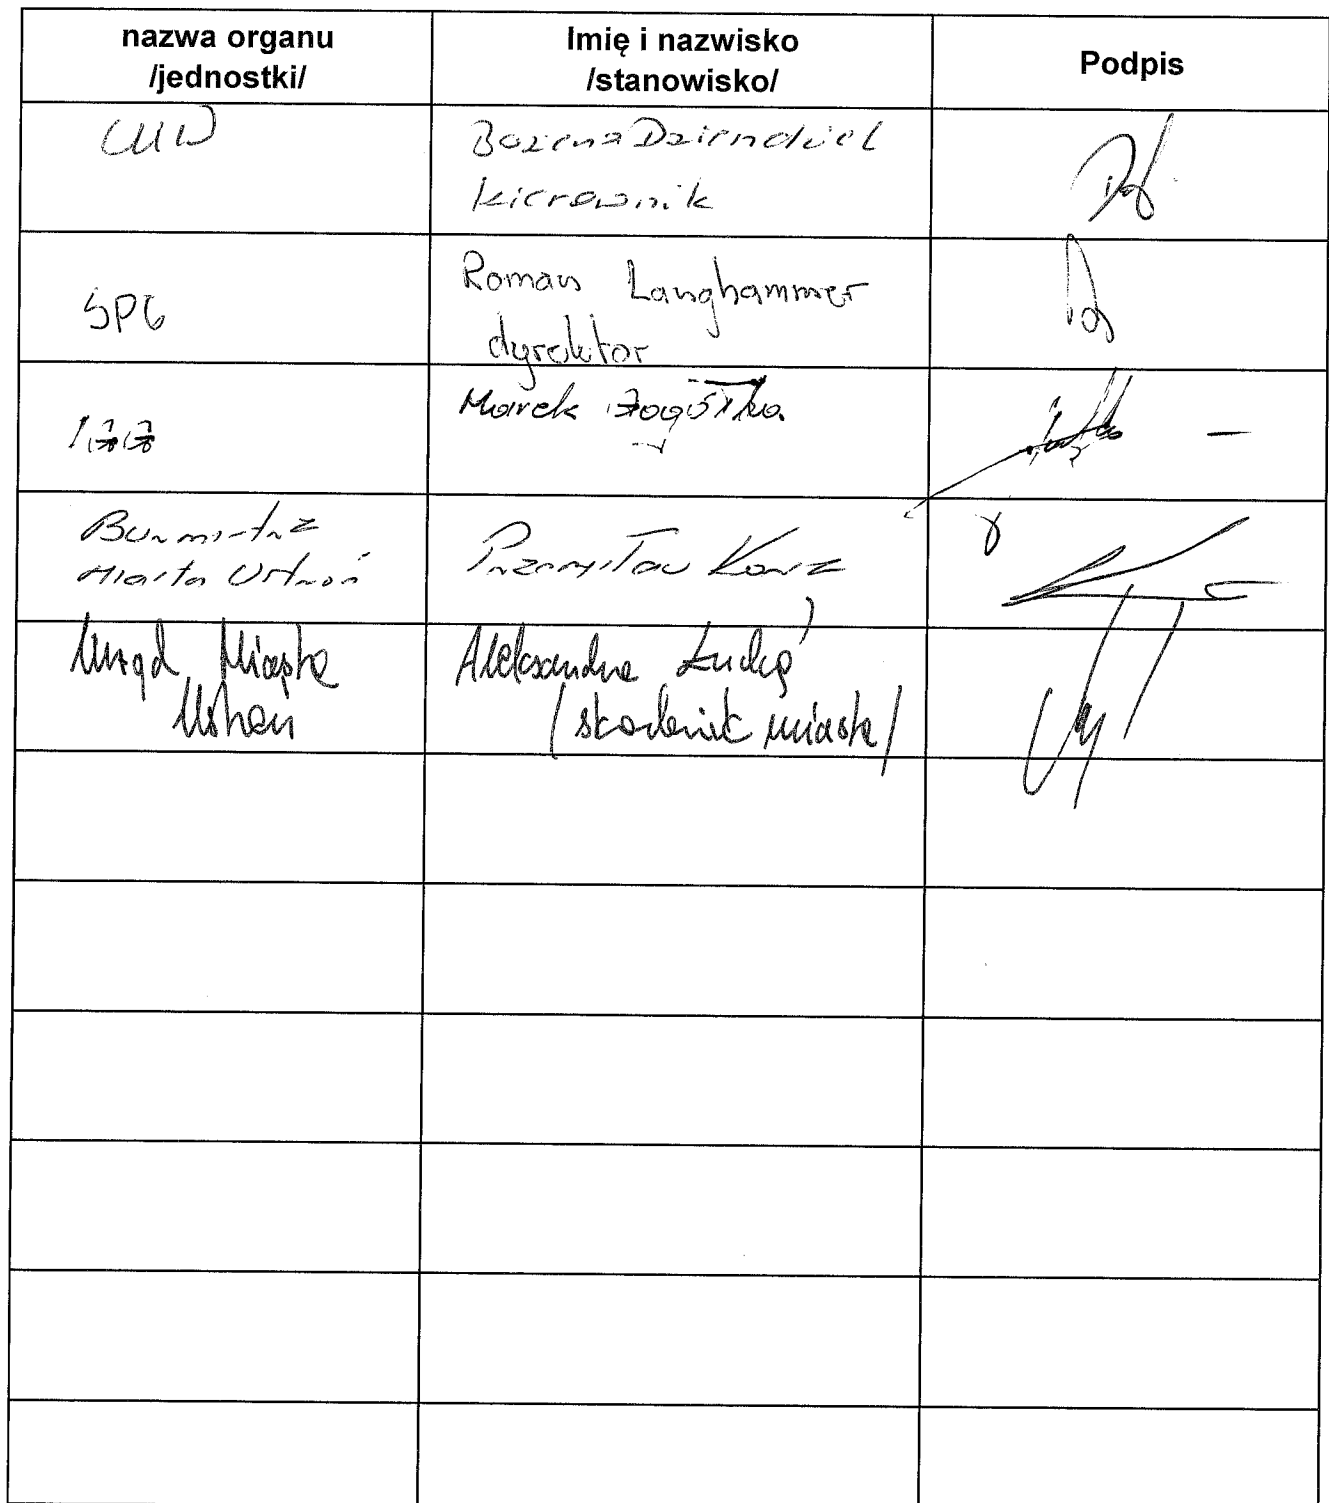 nazwa organu
/jednostki/
Imię i nazwisko
/stanowisko/
Podpis
CUW
Bożena Dziendziel
kierownik
SP6
Roman Langhammer
dyrektor
Marek
Burmistrz
Miasta Ustroń
Przemysław Korcz
Urząd Miasta
Ustroń
Aleksandra Łuckoś
/skarbnik miasta/